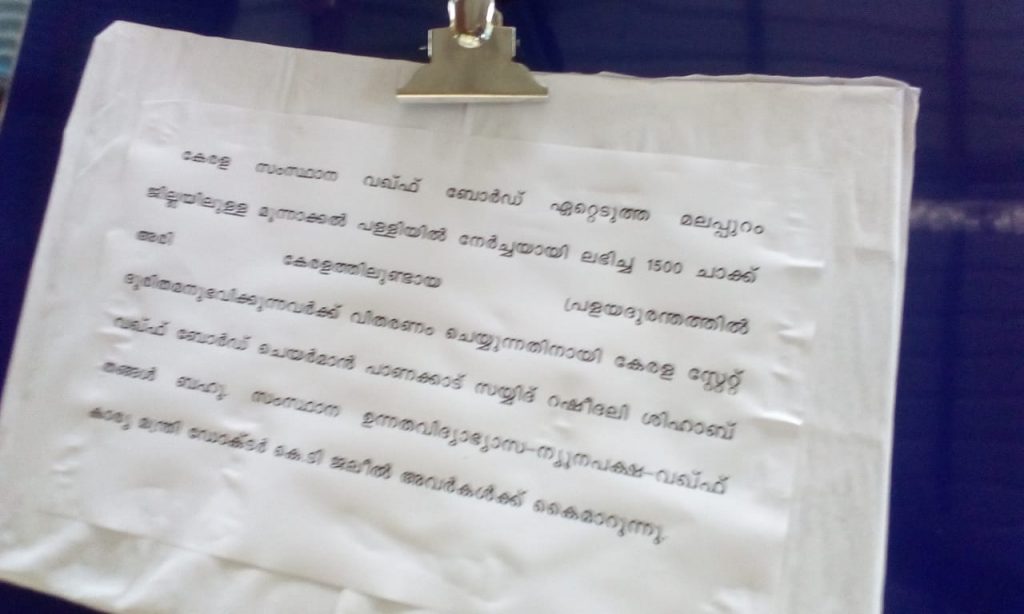 കേരള സംസ്ഥാന വഖ്ഫ് ബോർഡ് ഏറ്റെടുത്ത മലപ്പുറം
ജില്ലയിലുള്ള മൂന്നാക്കൽ പള്ളിയിൽ നേർച്ചയായി ലഭിച്ച 1500 ചാക്ക്
അരി കേരളത്തിലുണ്ടായ പ്രളയദുരന്തത്തിൽ
ദുരിതമനുഭവിക്കുന്നവർക്ക് വിതരണം ചെയ്യുന്നതിനായി കേരള സ്റ്റേറ്റ്
വഖ്ഫ് ബോർഡ് ചെയർമാൻ പാണക്കാട് സയ്യിദ് റഷീദലി ശിഹാബ്
തങ്ങൾ ബഹു. സംസ്ഥാന ഉന്നതവിദ്യാഭ്യാസ-ന്യൂനപക്ഷ-വഖ്ഫ്
കാര്യ മന്ത്രി ഡോക്ടർ കെ.ടി ജലീൽ അവർകൾക്ക് കൈമാറുന്നു.